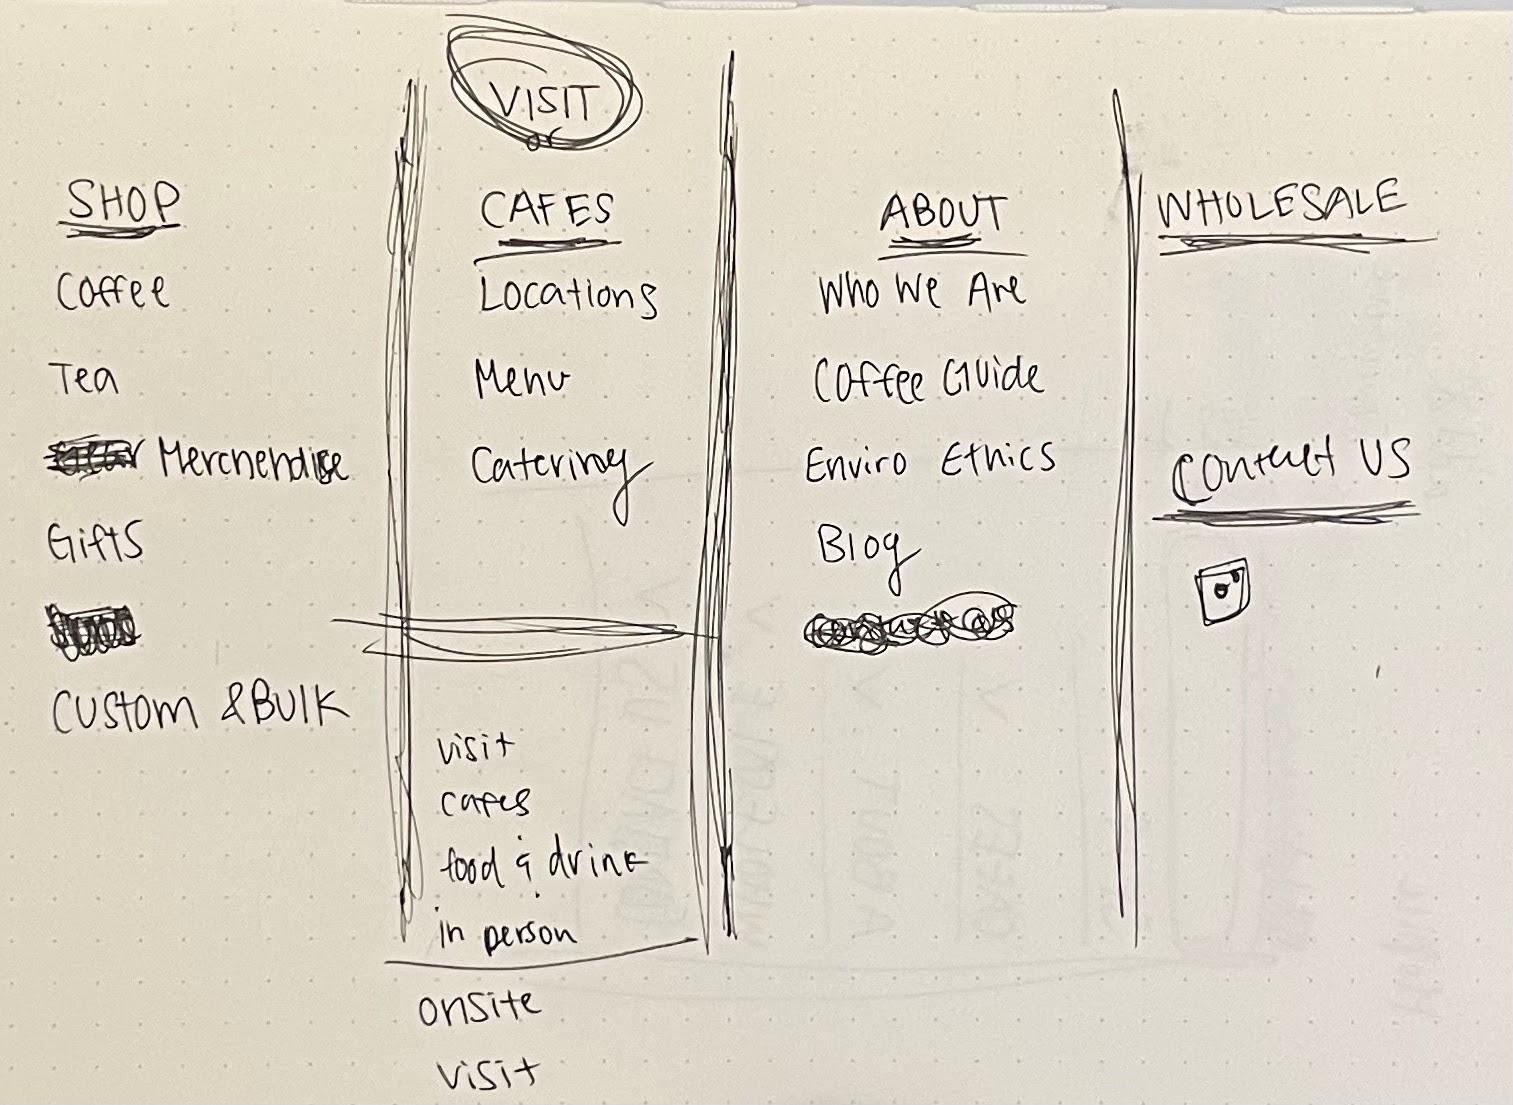 SHOP
Coffee
Tea
Merchendise
Gifts
Custom & Bulk
VISIT
or
CAFES
Locations
Menu
Catering
visit
cafes
food & drink
in person
onsite
visit
ABOUT
Who We Are
Coffee Guide
Enviro Ethics
Blog
WHOLESALE
Contact US